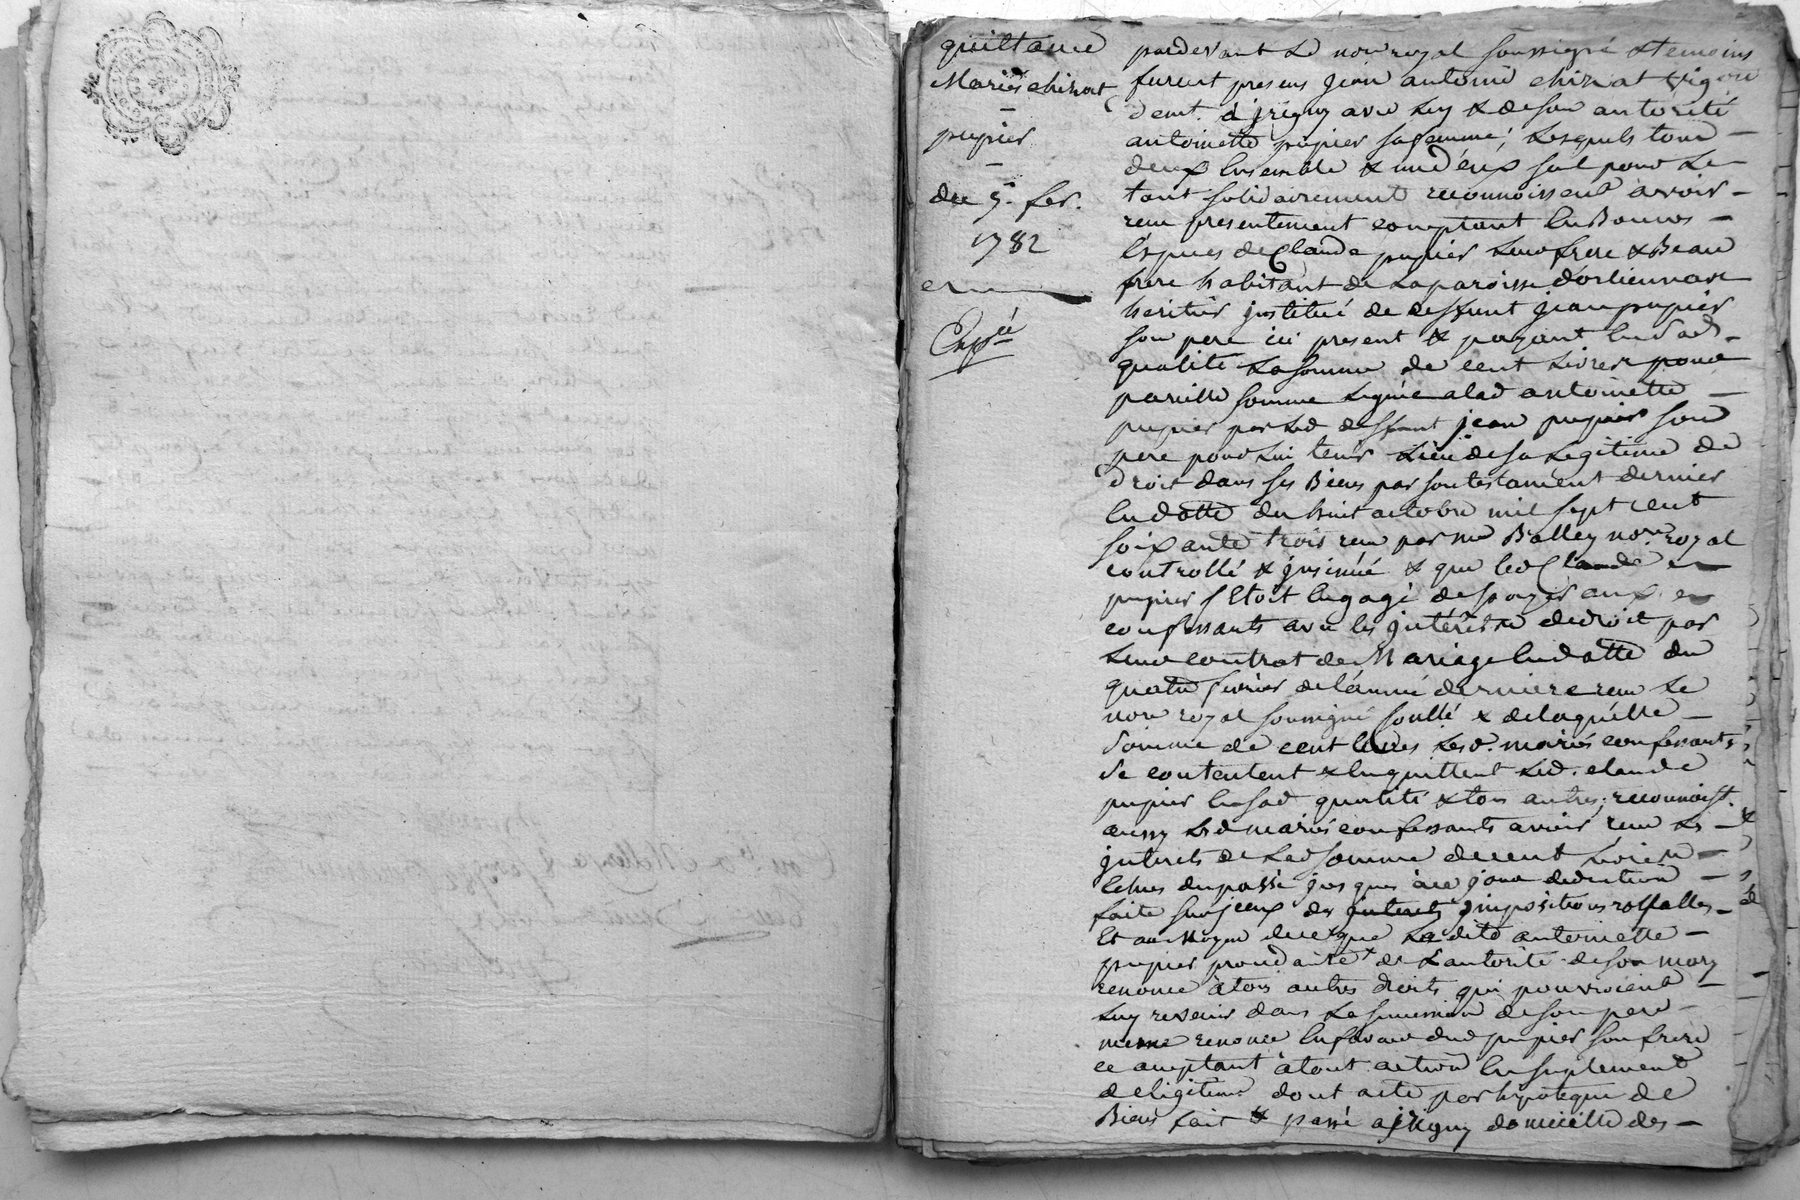 quittance
Mariés chirat
pupier
du 5. fev.
1782
Exp.ié
pardevant Le nore royal soussigné & temoins
furent presens jean antoine chirat vigon
demt. à jrigny avec Luy & de son autorité
antoinette pupier sa femme, Lesquels tous
deux Ensemble & un deux sul pour Le
tout solidairement reconnoissent avoir
reçu presentement comptant En Bonnes
Espices de Claude pupier Leur frere & Beau
frere habitant de La paroisse d'orliennas
heritier jnstitué de deffunt jean pupier
son pere ici present & payant En sad.
qualité La somme de cent Livres pour
pareille somme Leguée a lad antoinette
pupier par Led deffunt jean pupier son
pere pour Lui tenir Lieu de sa Legitime de
droit dans ses Biens par son testament dernier
En datte du huit octobre mil sept cent
soixante trois reçu par me Balley nore royal
controllé & jnsinué & que led Claude
pupier s'Etoit Engagé de payer aux
confessants avec les jntérêts de droit par
Leur contrat de Mariage En datte du
quatre fevrier de l'année derniere reçu Le
nore royal soussigné scellé & de laquelle
somme de cent Livres Lesd. mariés confessants
se contentent & En quittent Led. claude
pupier En sad qualité & tous autres; reconnoisst.
aussy Lesd mariés confessants avoir reçu Les
jnterets de Lad somme de cent Livres
Echus du passé jusques à ce jour deduction
faite sur jceux des jmpositions royalles
Et au Moyen de ce que La ditte antoinette
pupier procedante de L'autorité de son mary
renonce à tous autres droits qui pourroient
Luy revenir dans La succession de son pere
meme renonce En faveur dud pupier son frere
ce acceptant à tout action En suplement
de legitime dont acte par hypoteque de
Biens fait & passé a jrigny domicille des